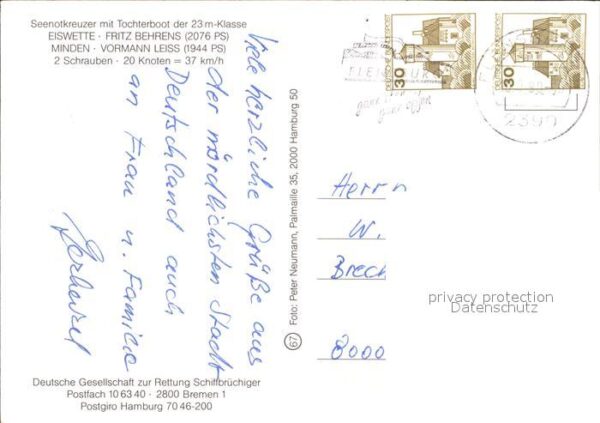 Seenotkreuzer mit Tochterboot der 23 m-Klasse
EISWETTE · FRITZ BEHRENS (2076 PS)
MINDEN · VORMANN LEISS (1944 PS)
2 Schrauben · 20 Knoten = 37 km/h
Viele herzliche Grüße aus
der nördlichsten Stadt
Deutschland auch
an Frau u. Familie
Deutsche Gesellschaft zur Rettung Schiffbrüchiger
Postfach 10 63 40 · 2800 Bremen 1
Postgiro Hamburg 70 46-200
67 Foto: Peter Neumann, Palmaille 35, 2000 Hamburg 50
30
30
2390
Herrn
W.
Brech
8000
privacy protection
Datenschutz